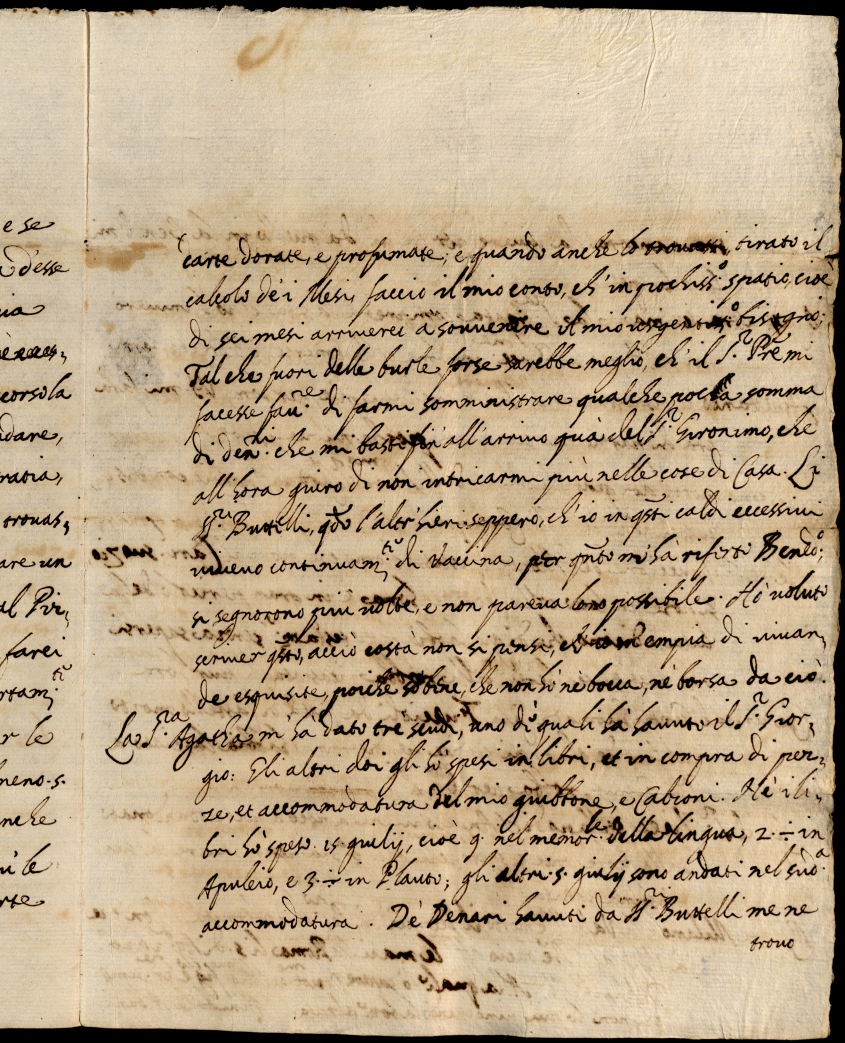 e se
d'esse
corsola
dare,
ratia,
trovas,
are un
al Pir,
farei
rtam.te
r le
meno.5.
nche
ù le
rte
carte dorate, e profumate; e quando anche lo trovassi, tirato il
calcolo de i Mesi, faccio il mio conto, ch' in pochiss.o spatio, cioè
di sei mesi arriverei a sovvenire il mio urgentiss.o bisogno;
Tal che fuori delle burle forse sarebbe meglio, ch' il S.r P.re mi
facesse fav.re di farmi somministrare qualche poca somma
di den.ri che mi basti fin' all' arrivo quà del S.r Gironimo, che
all' hora giuro di non intricarmi più nelle cose di Casa. Li
SS.ri Buttelli, q.do l'altr'hieri seppero, ch' io in q.sti caldi eccessivi
vivevo continuam.te di Vaccina, per q.nto m' hà riferto Bend.o;
si segnorono più volte, e non pareva loro possibile. Hò voluto
scriver q.sto, acciò costà non si pensi, ch' io m' empia di vivan,
de esquisite, poiche sò bene, che non hò nè bocca, nè borsa da ciò.
La S.ra Agatha m' ha dato trè scudi, uno de quali hà havuto il S.r Gior,
gio: Gli altri doi gli hò spesi in libri, et in compra di per,
ze, et accommodatura del mio giubbone, e Calzoni. Nè i li,
bri hò speso .15. giulij, cioè 9. nel memor.le della lingua, 2. ÷ in
Apuleio, e 3. ÷ in Plauto; gli altri .5. giulij sono andati nel sud.a
accommodatura. De Denari havuti da SS.ri Buttelli me ne
trovo